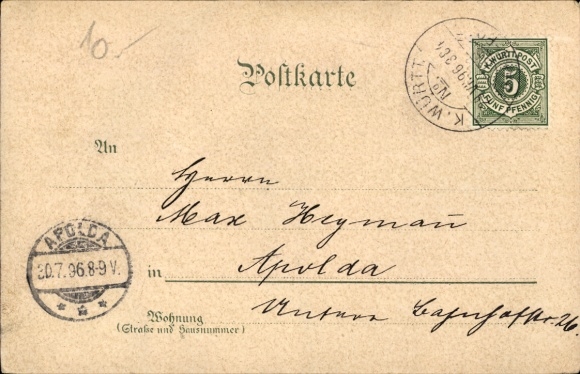 10.-
K. WÜRTT.
K. WÜRTT. POST
5
FÜNF PFENNIG
Postkarte
An
Herrn
Max Heymann
APOLDA
30.7.96.8-9 V.
in Apolda
Untere Bahnhofstr. 26.
Wohnung
(Straße und Hausnummer)